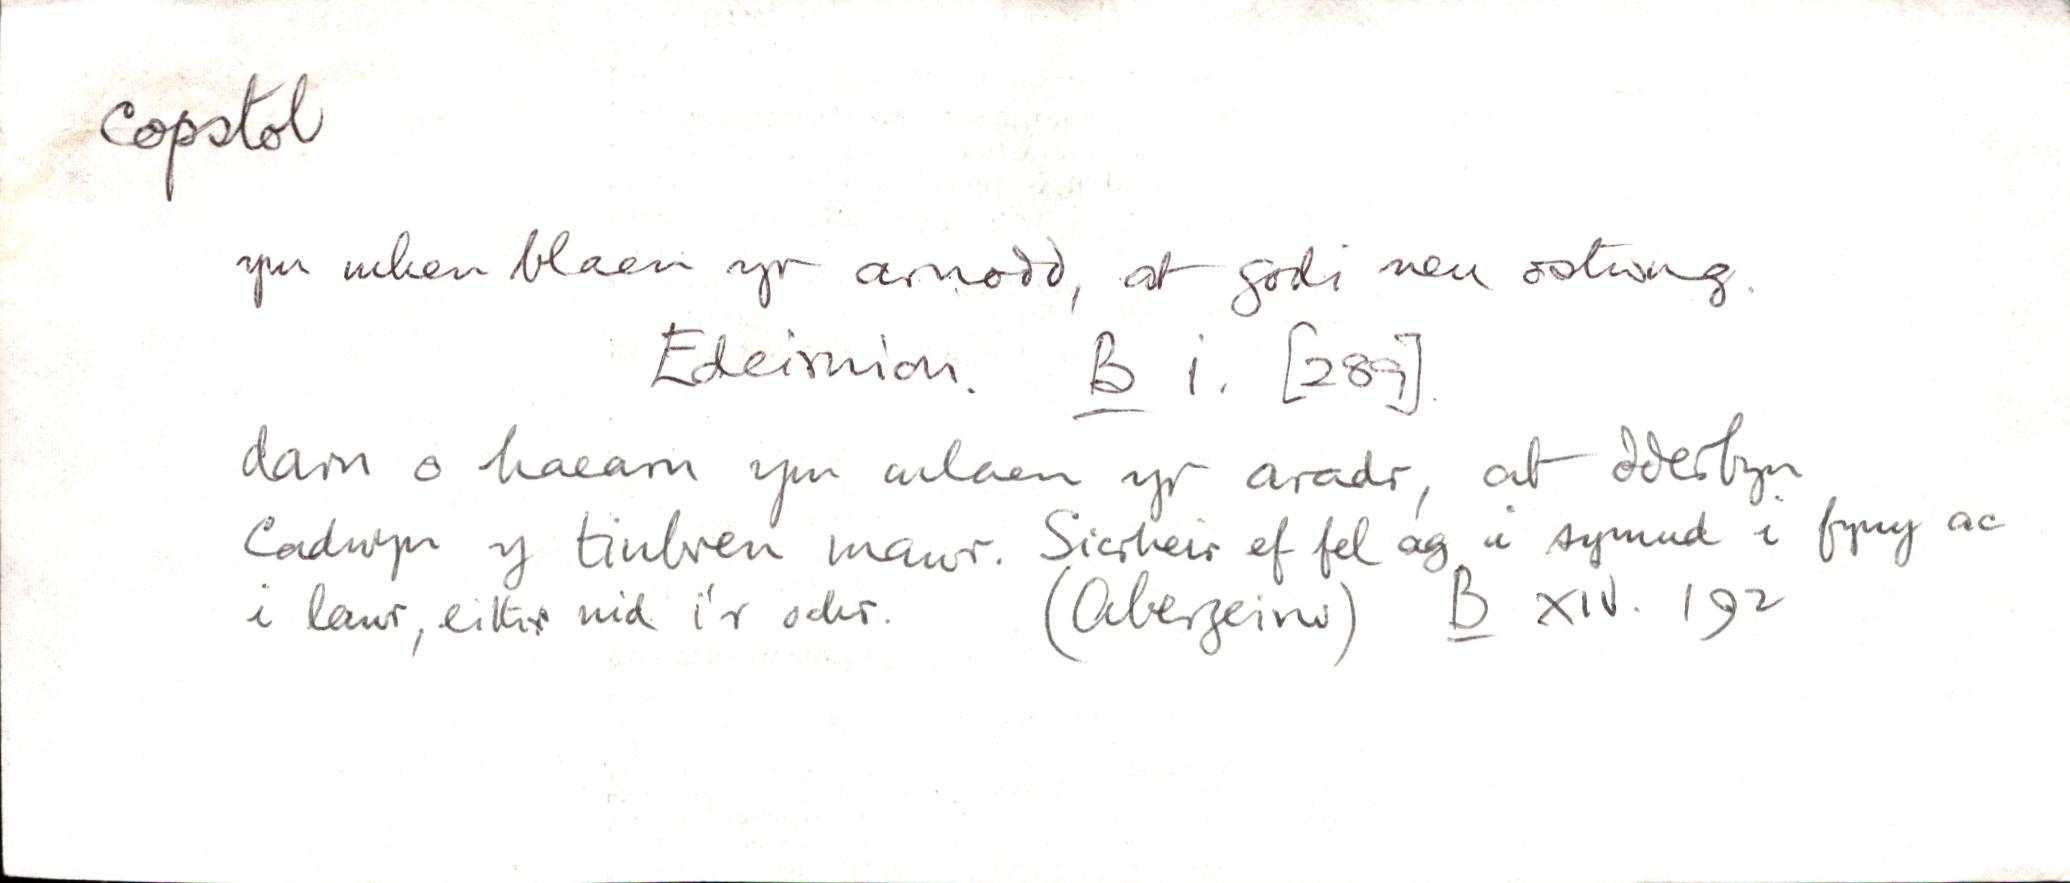 copstol
ym mhen blaen yr arnodd, at godi neu ostwng.
Edeirnion. B i. [289].
darn o haearn ym mlaen yr aradr, at dderbyn
Cadwyn y tinbren mawr. Sicrheir ef fel ag i symud i fyny ac
i lawr, eithr nid i'r ochr. (Abergeirw) B XIV. 192